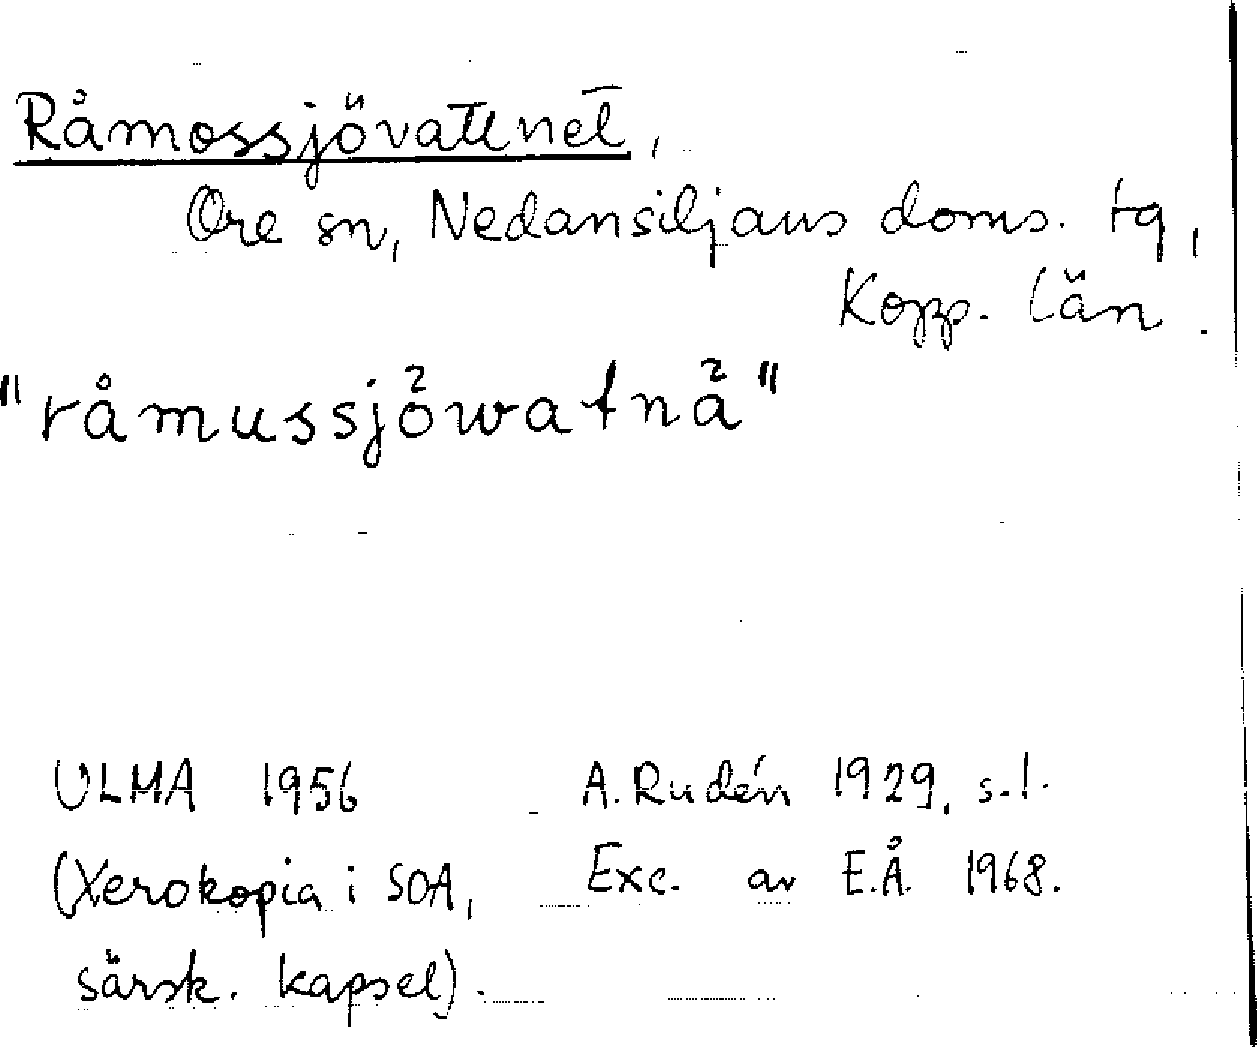 Råmossjövattnet,
Ore sn, Nedansiljans doms. tg,
Kopp. län.
"råmussjöwatnå"
ULMA 1956 A. Rudén 1929, s. 1.
(Xerokopia i SOA, Exc. av E.Å. 1968.
särsk. kapsel).